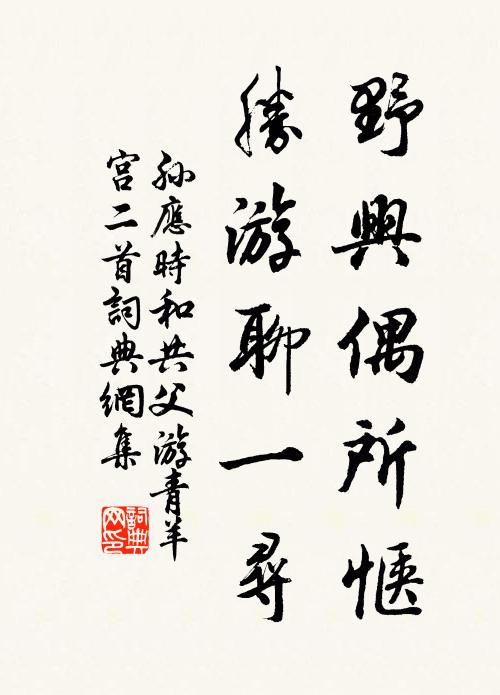 野興偶所愜
勝游聊一尋
孙應時和共父游青羊
宮二首詞典網集
詞典
网印